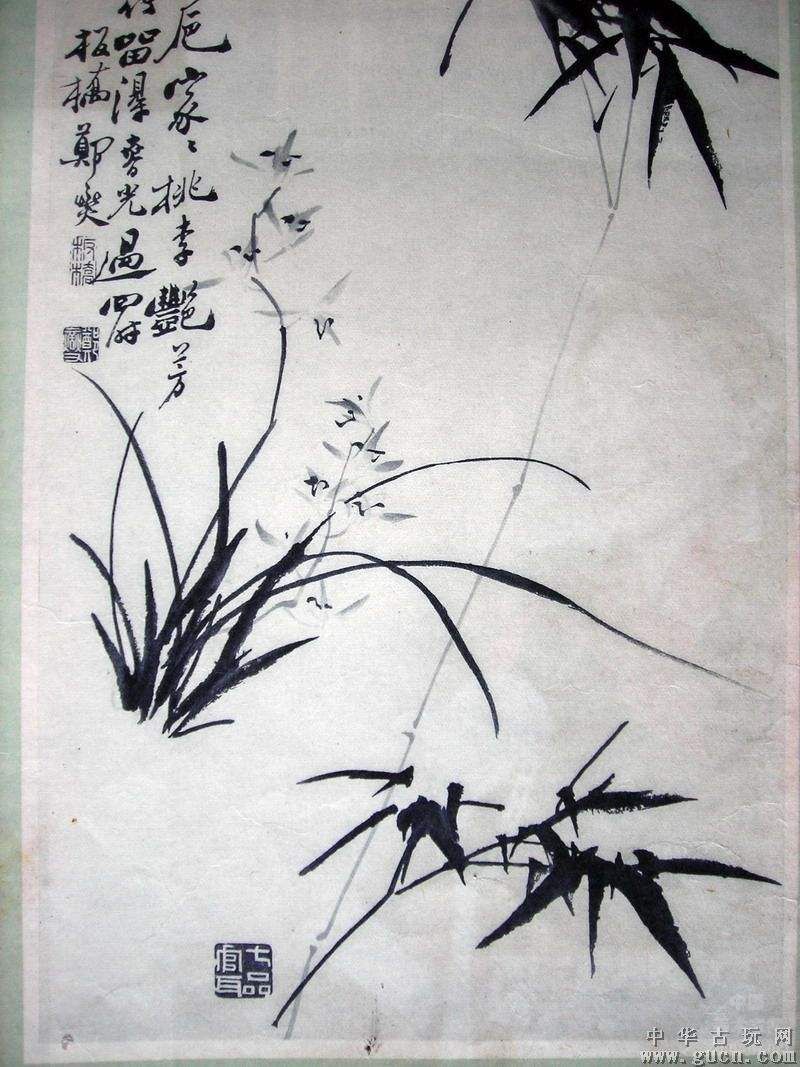 卮家〻桃李豔芳
竹留得春光過四時
板橋鄭燮
板橋
七品官耳
中华古玩网
www.gucn.com